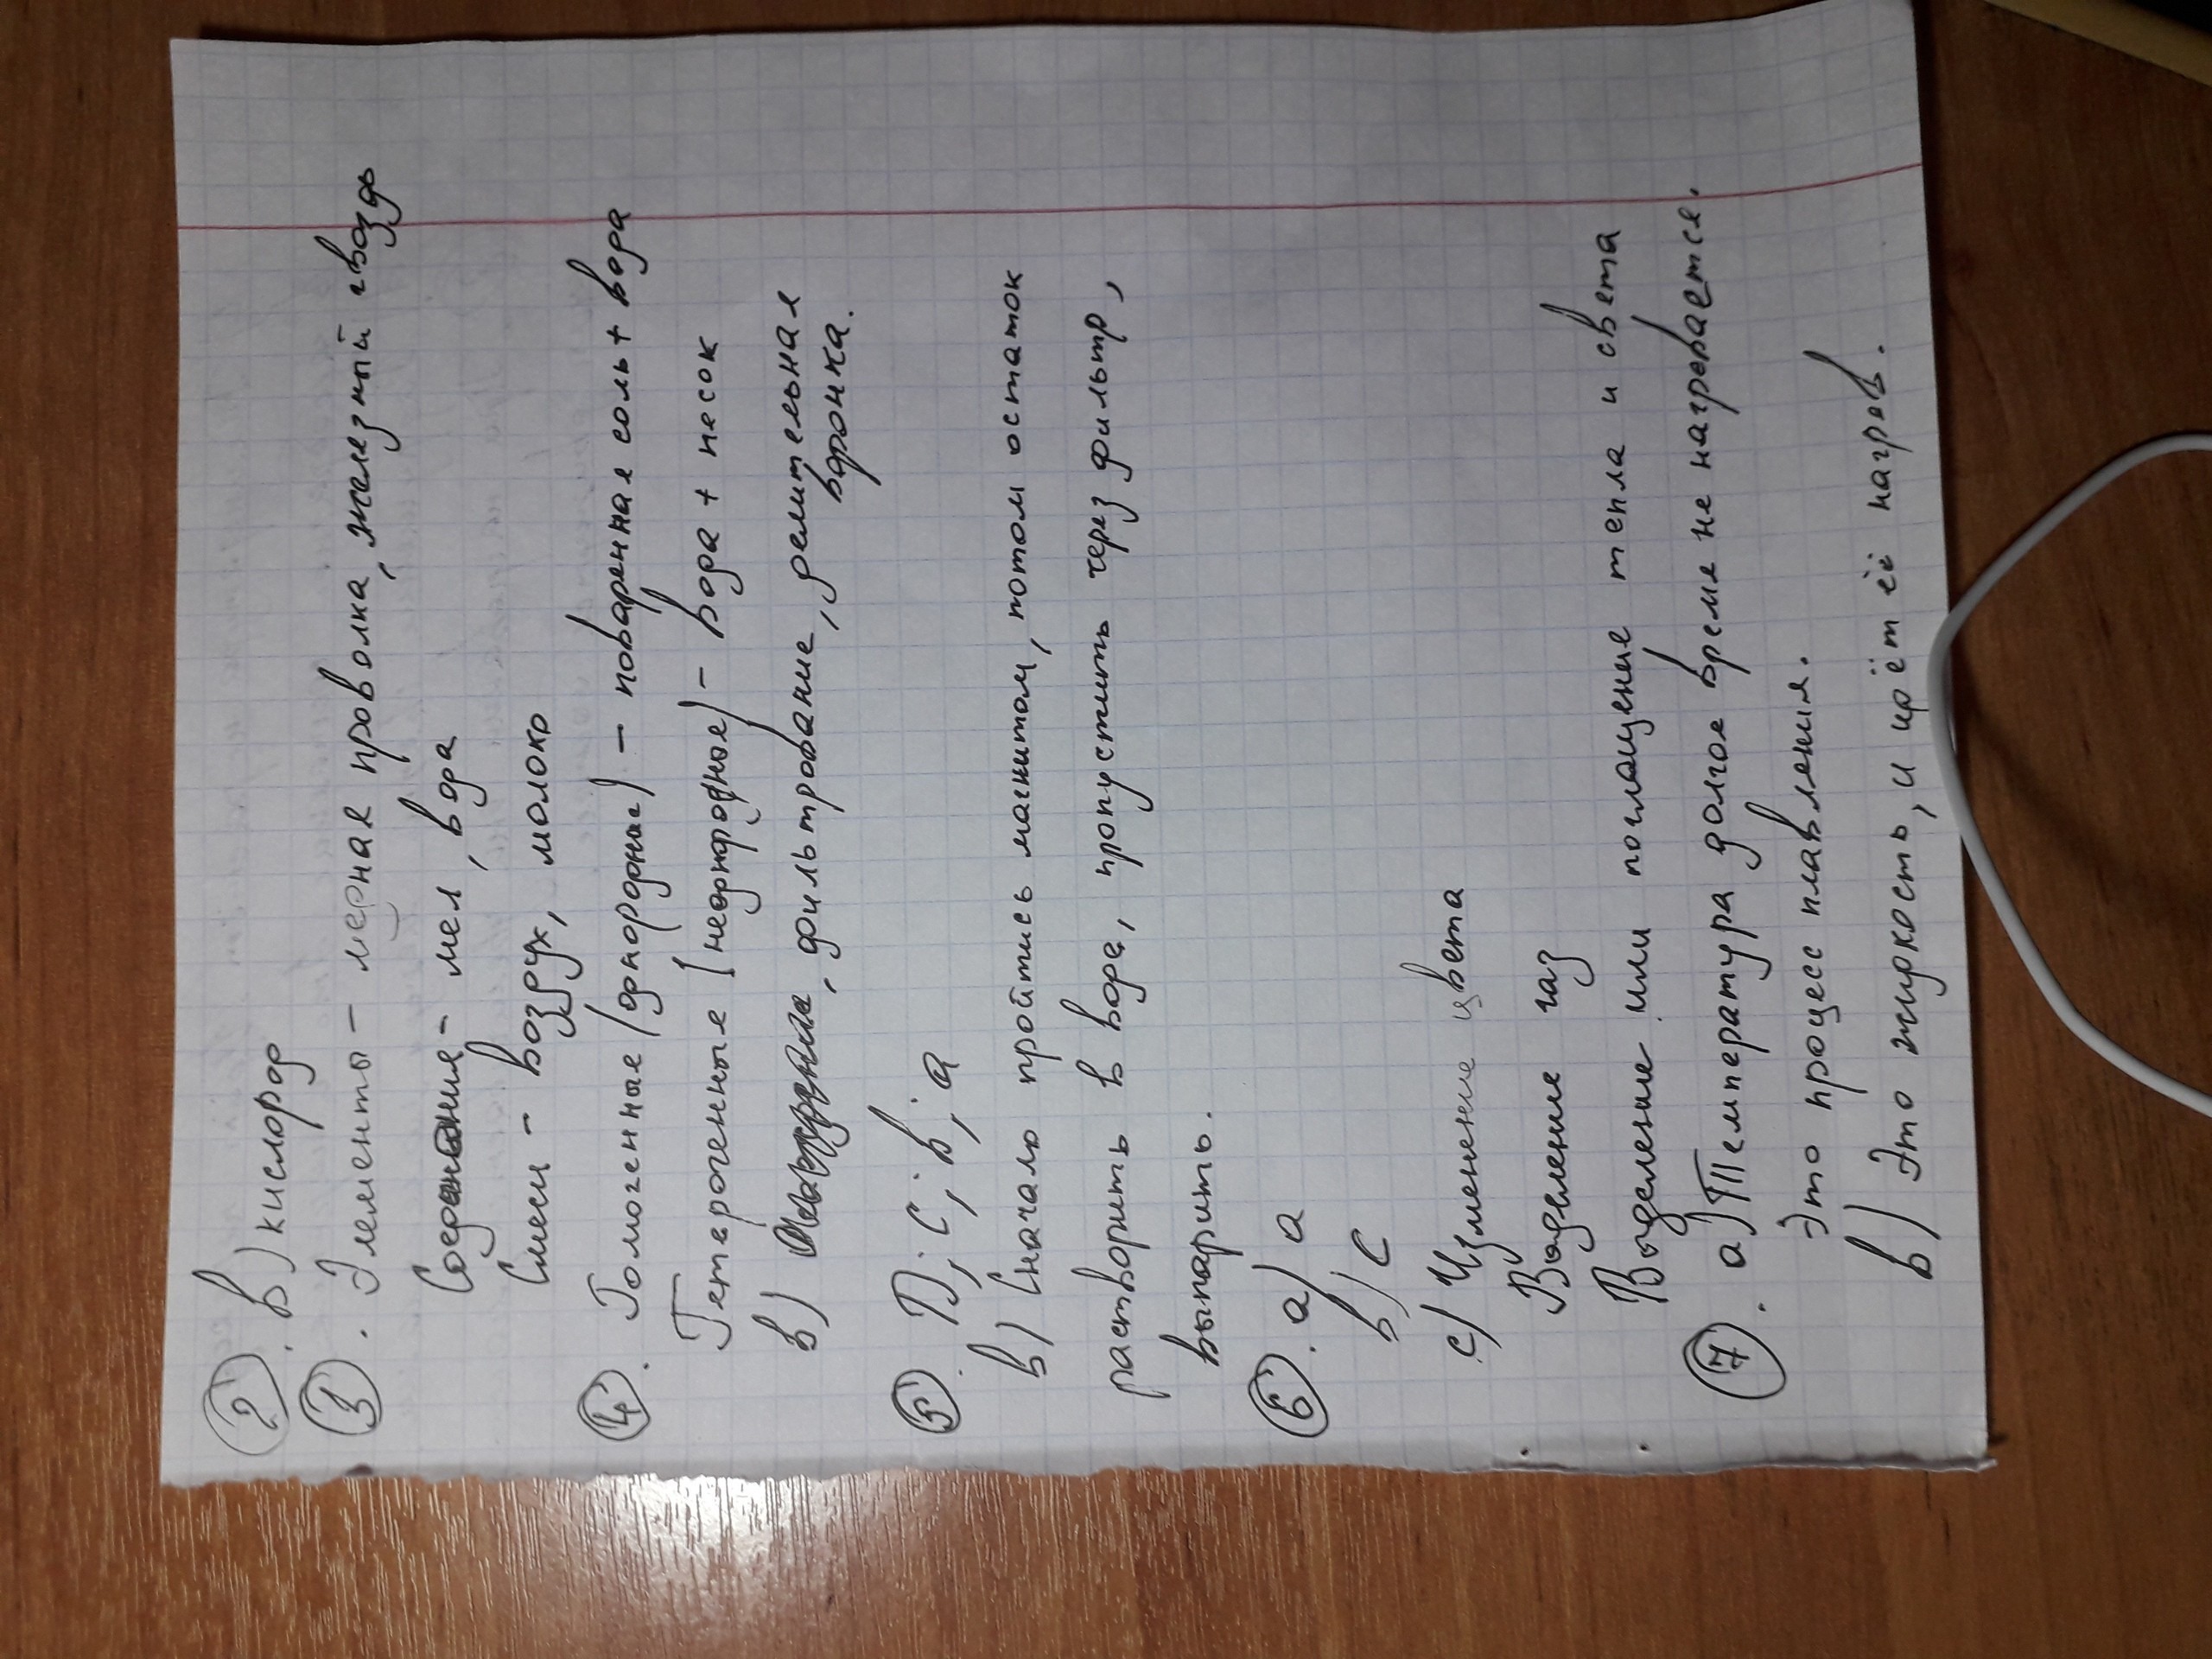 2. в) кислород
3. Элементы – медная проволка, железный гвоздь
Соединения – мел, вода
Смеси – воздух, молоко
4. Гомогенные (однородные) – поваренная соль + вода
Гетерогенные [неоднородные) – вода + песок
в) , фильтрование, делительная
воронка.
5. D; c; b; a
в) Сначало пройтись магнитом, потом остаток
растворить в воде, пропустить через фильтр,
выпарить.
6. a) a
b) c
c) Изменение цвета
Выделение газ
Выделение или поглащение тепла и света
7. а) Температура долгое время не нагревается.
Это процесс плавления.
в) Это жидкость, и идёт её нагрев.